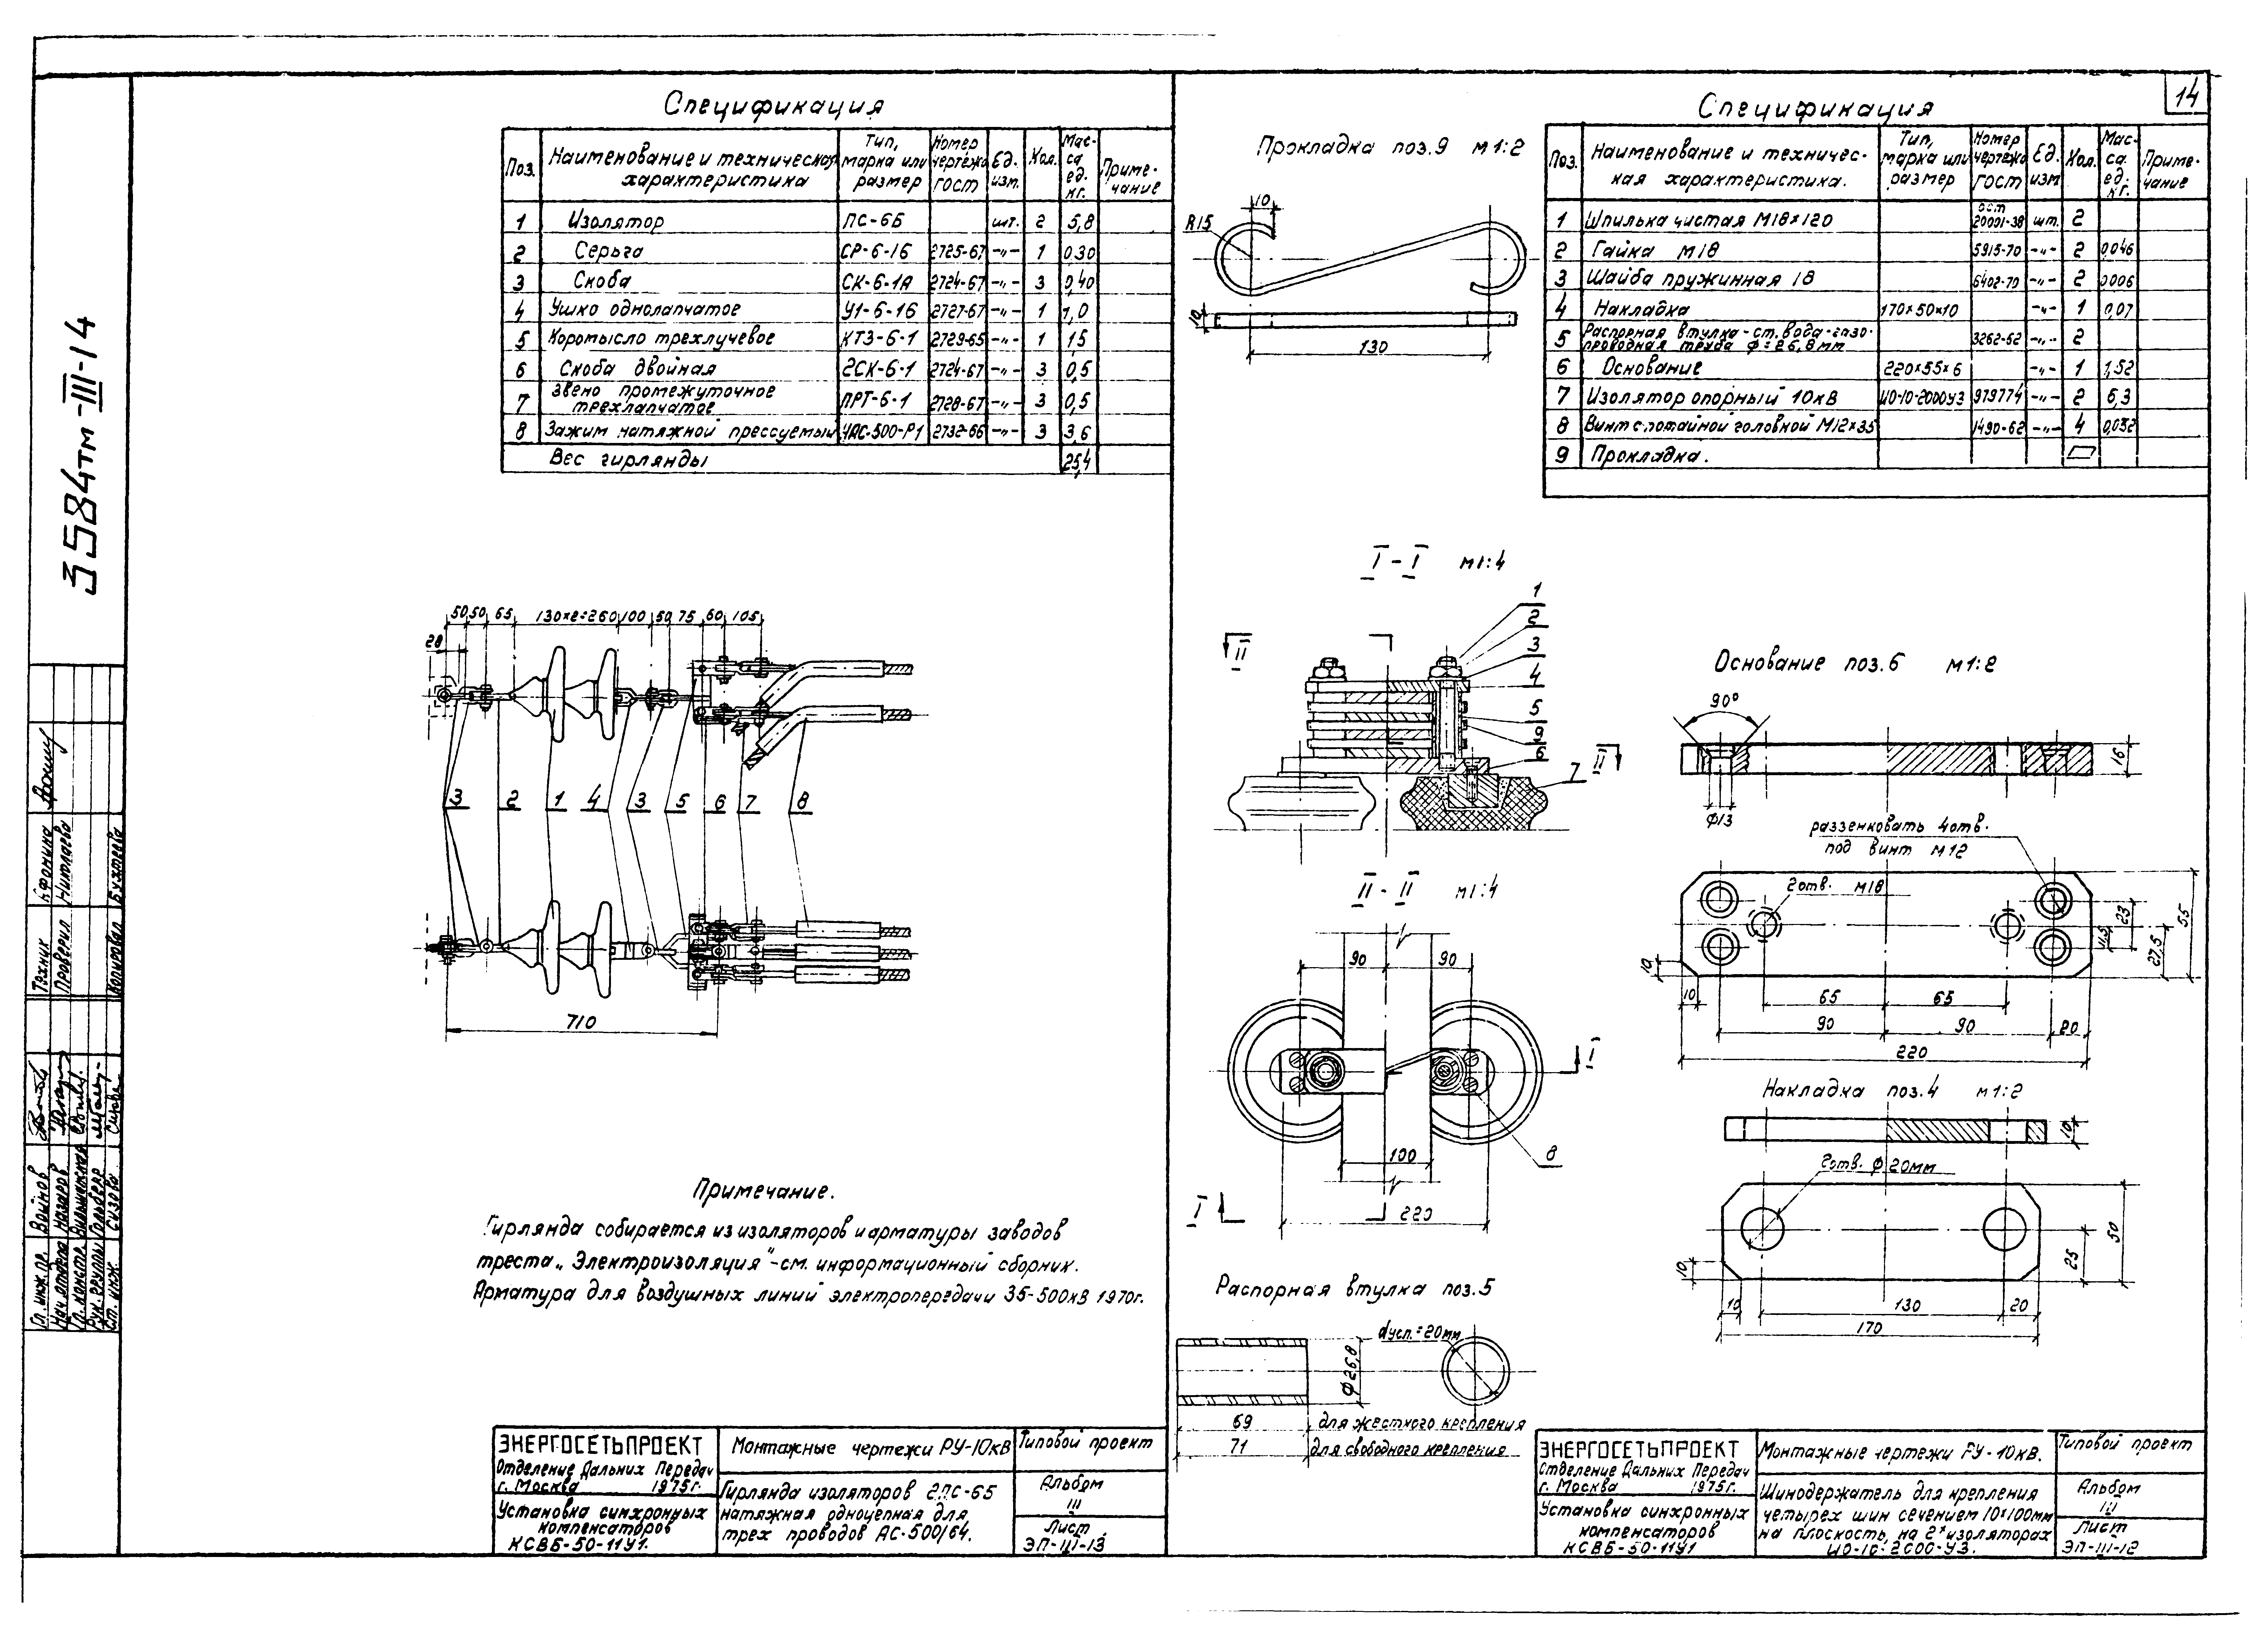 14
3584тм-III-14
Спецификация
Поз. Наименование и техническая характеристика Тип, марка или размер Номер чертежа ГОСТ Ед. изм. Кол. Масса ед. кг. Примечание
1 Изолятор ПС-6Б шт. 2 5,8
2 Серьга СР-6-16 2725-67 -„- 1 0,30
3 Скоба СК-6-1А 2724-67 -„- 3 0,40
4 Ушко однолапчатое У1-6-16 2727-67 -„- 1 1,0
5 Коромысло трехлучевое КТЗ-6-1 2729-65 -„- 1 15
6 Скоба двойная 2СК-6-1 2724-67 -„- 3 0,5
7 Звено промежуточное трехлапчатое ПРТ-6-1 2728-67 -„- 3 0,5
8 Зажим натяжной прессуемый НАС-500-Р1 2732-66 -„- 3 3,6
Вес гирлянды 25,4
50 50 65 130×2=260 100 50 75 60 105
28
3 2 1 4 3 5 6 7 8
710
Примечание.
Гирлянда собирается из изоляторов и арматуры заводов
треста „Электроизоляция"-см. информационный сборник.
Арматура для воздушных линий электропередачи 35-500кВ 1970г.
ЭНЕРГОСЕТЬПРОЕКТ
Отделение Дальних Передач
г. Москва 1975г.
Установка синхронных
компенсаторов
КСВБ-50-11У1.
Монтажные чертежи РУ-10кВ
Гирлянда изоляторов 2ПС-6Б
натяжная одноцепная для
трех проводов АС-500/64.
Типовой проект
Альбом
III
Лист
ЭП-III-13
Прокладка поз.9 м1:2
10
R15
10
130
Спецификация
Поз. Наименование и техническая характеристика. Тип, марка или размер Номер чертежа ГОСТ Ед. изм Кол. Масса ед. кг. Примечание
1 Шпилька чистая М18×120 ост 20001-38 шт. 2
2 Гайка М18 5915-70 -„- 2 0,046
3 Шайба пружинная 18 6402-70 -„- 2 0,006
4 Накладка 170×50×10 -„- 1 0,07
5 Распорная втулка-ст. водо-газопроводная труба ф=26,8мм 3262-62 -„- 2
6 Основание 220×55×6 -„- 1 1,52
7 Изолятор опорный 10кВ ИО-10-2000У3 979774 -„- 2 6,3
8 Винт с потайной головкой М12×35 1490-62 -„- 4 0,032
9 Прокладка.
I - I м1:4
II
1
2
3
4
5
9
6
7 II
II - II м1:4
90 90
I
100
8
I
220
Распорная втулка поз.5
dусл.=20мм
ф26,8
69 для жесткого крепления
71 для свободного крепления
Основание поз.6 м1:2
90°
16
ф13
раззенковать 4отв.
под винт М12
2отв. М18
23
11,5
27,5
55
10
10
65 65
90 90 20
220
Накладка поз.4 м1:2
10
2отв. ф20мм
50
25
10
10 130 20
170
ЭНЕРГОСЕТЬПРОЕКТ
Отделение Дальних Передач
г. Москва 1975г.
Установка синхронных
компенсаторов
КСВБ-50-11У1
Монтажные чертежи РУ-10кВ.
Шинодержатель для крепления
четырех шин сечением 10×100мм
на плоскость, на 2х изоляторах
ИО-10-2000-У3.
Типовой проект
Альбом
III
Лист
ЭП-III-12
Техник Афонина
Проверил
Копировал Бухтеева
Гл. инж. пр. Войнов
Нач. отдела Назаров
Гл. констр.
Рук. группы Гольберг
Ст. инж. Сизова